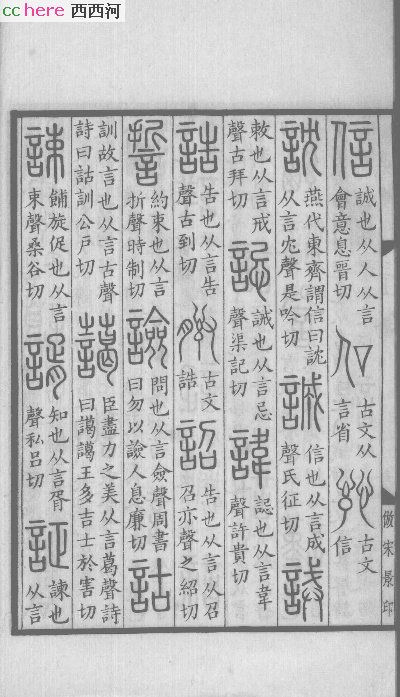 cchere 西西河
信 誠也从人从言
會意息晉切
㐰 古文从
言省
古文
信
訦 燕代東齊謂信曰訦
从言冘聲是吟切
誠 信也从言成
聲氏征切
誡
敕也从言戒
聲古拜切
誋 誡也从言忌
聲渠記切
諱 誋也从言韋
聲許貴切
誥 告也从言告
聲古到切
古文
誥
詔 告也从言从召
召亦聲之紹切
誓 約束也从言
折聲時制切
譣 問也从言僉聲周書
曰勿以譣人息廉切
詁
訓故言也从言古聲
詩曰詁訓公戶切
藹 臣盡力之美从言葛聲詩
曰藹藹王多吉士於害切
諫 餔旋促也从言
束聲桑谷切
諝 知也从言胥
聲私呂切
証 諫也
从言
倣宋景印